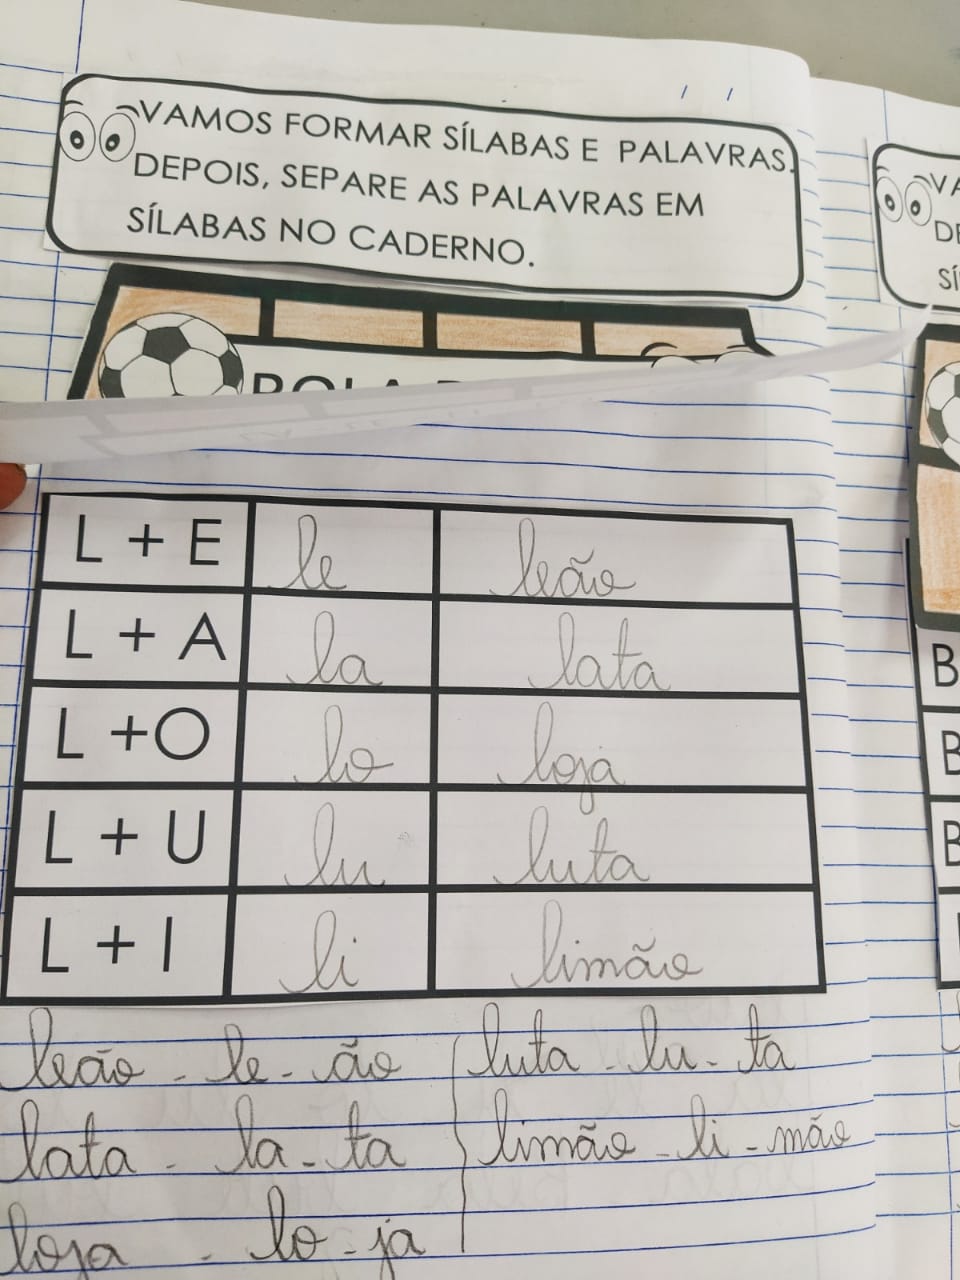 VAMOS FORMAR SÍLABAS E PALAVRAS.
DEPOIS, SEPARE AS PALAVRAS EM
SÍLABAS NO CADERNO.
L + E le leão
L + A la lata
L + O lo loja
L + U lu luta
L + I li limão
leão - le - ão
lata - la - ta
loja - lo - ja
luta - lu - ta
limão - li - mão
B
B
B